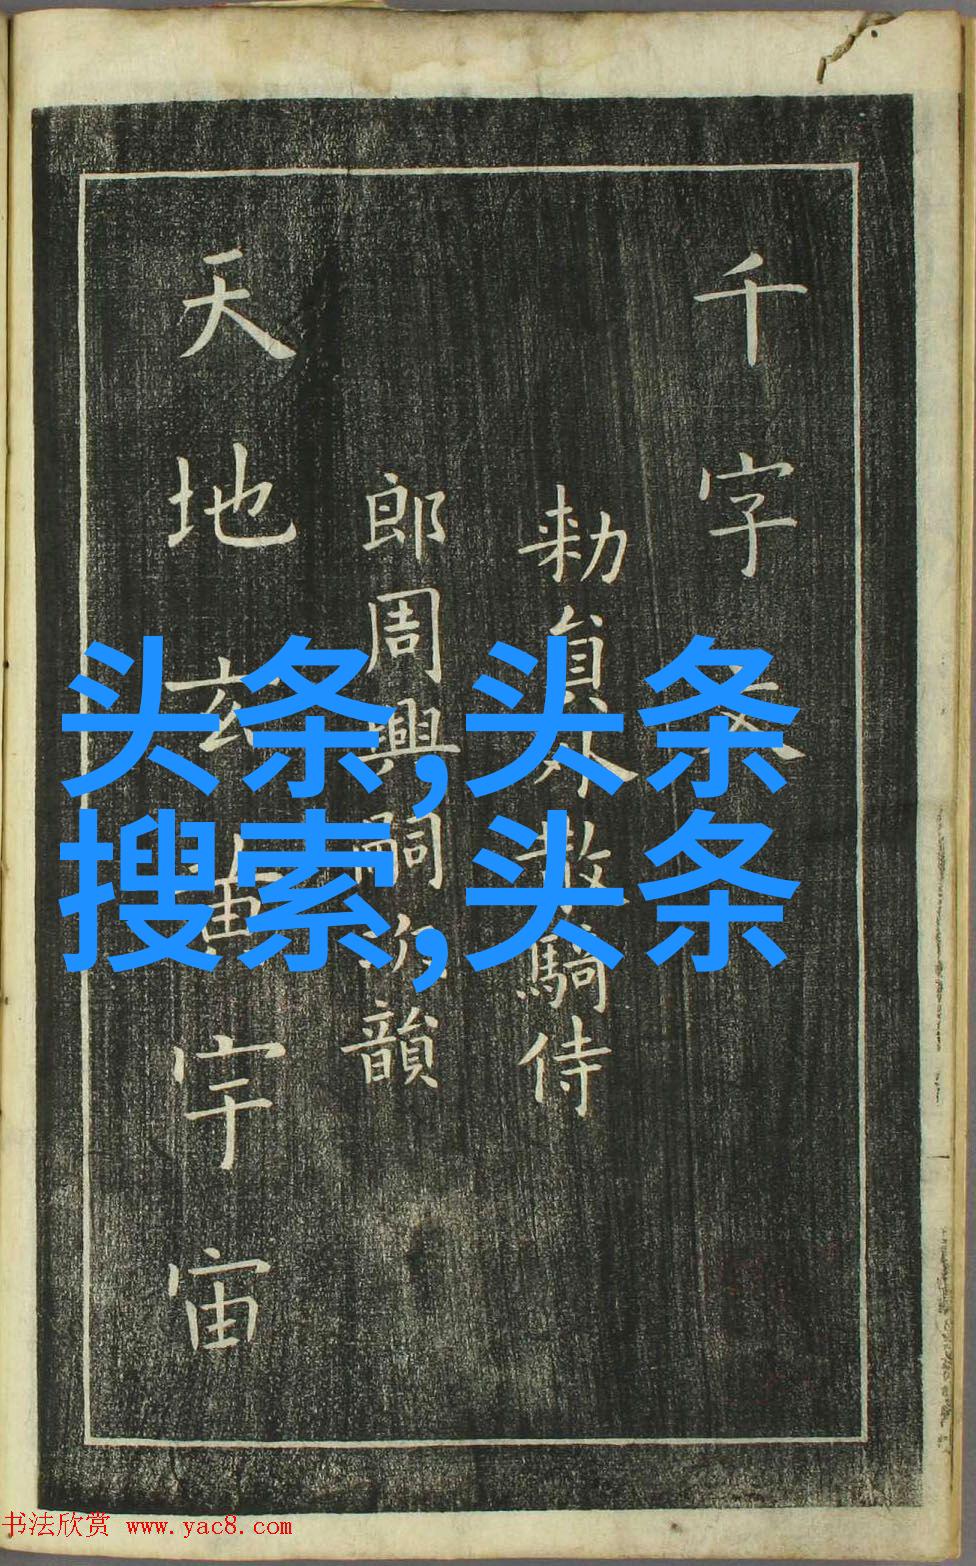 千字文
勑員外散騎侍
郎周興嗣次韻
天地玄黃宇宙
头条,头条
搜索,头条
书法欣赏 www.yac8.com